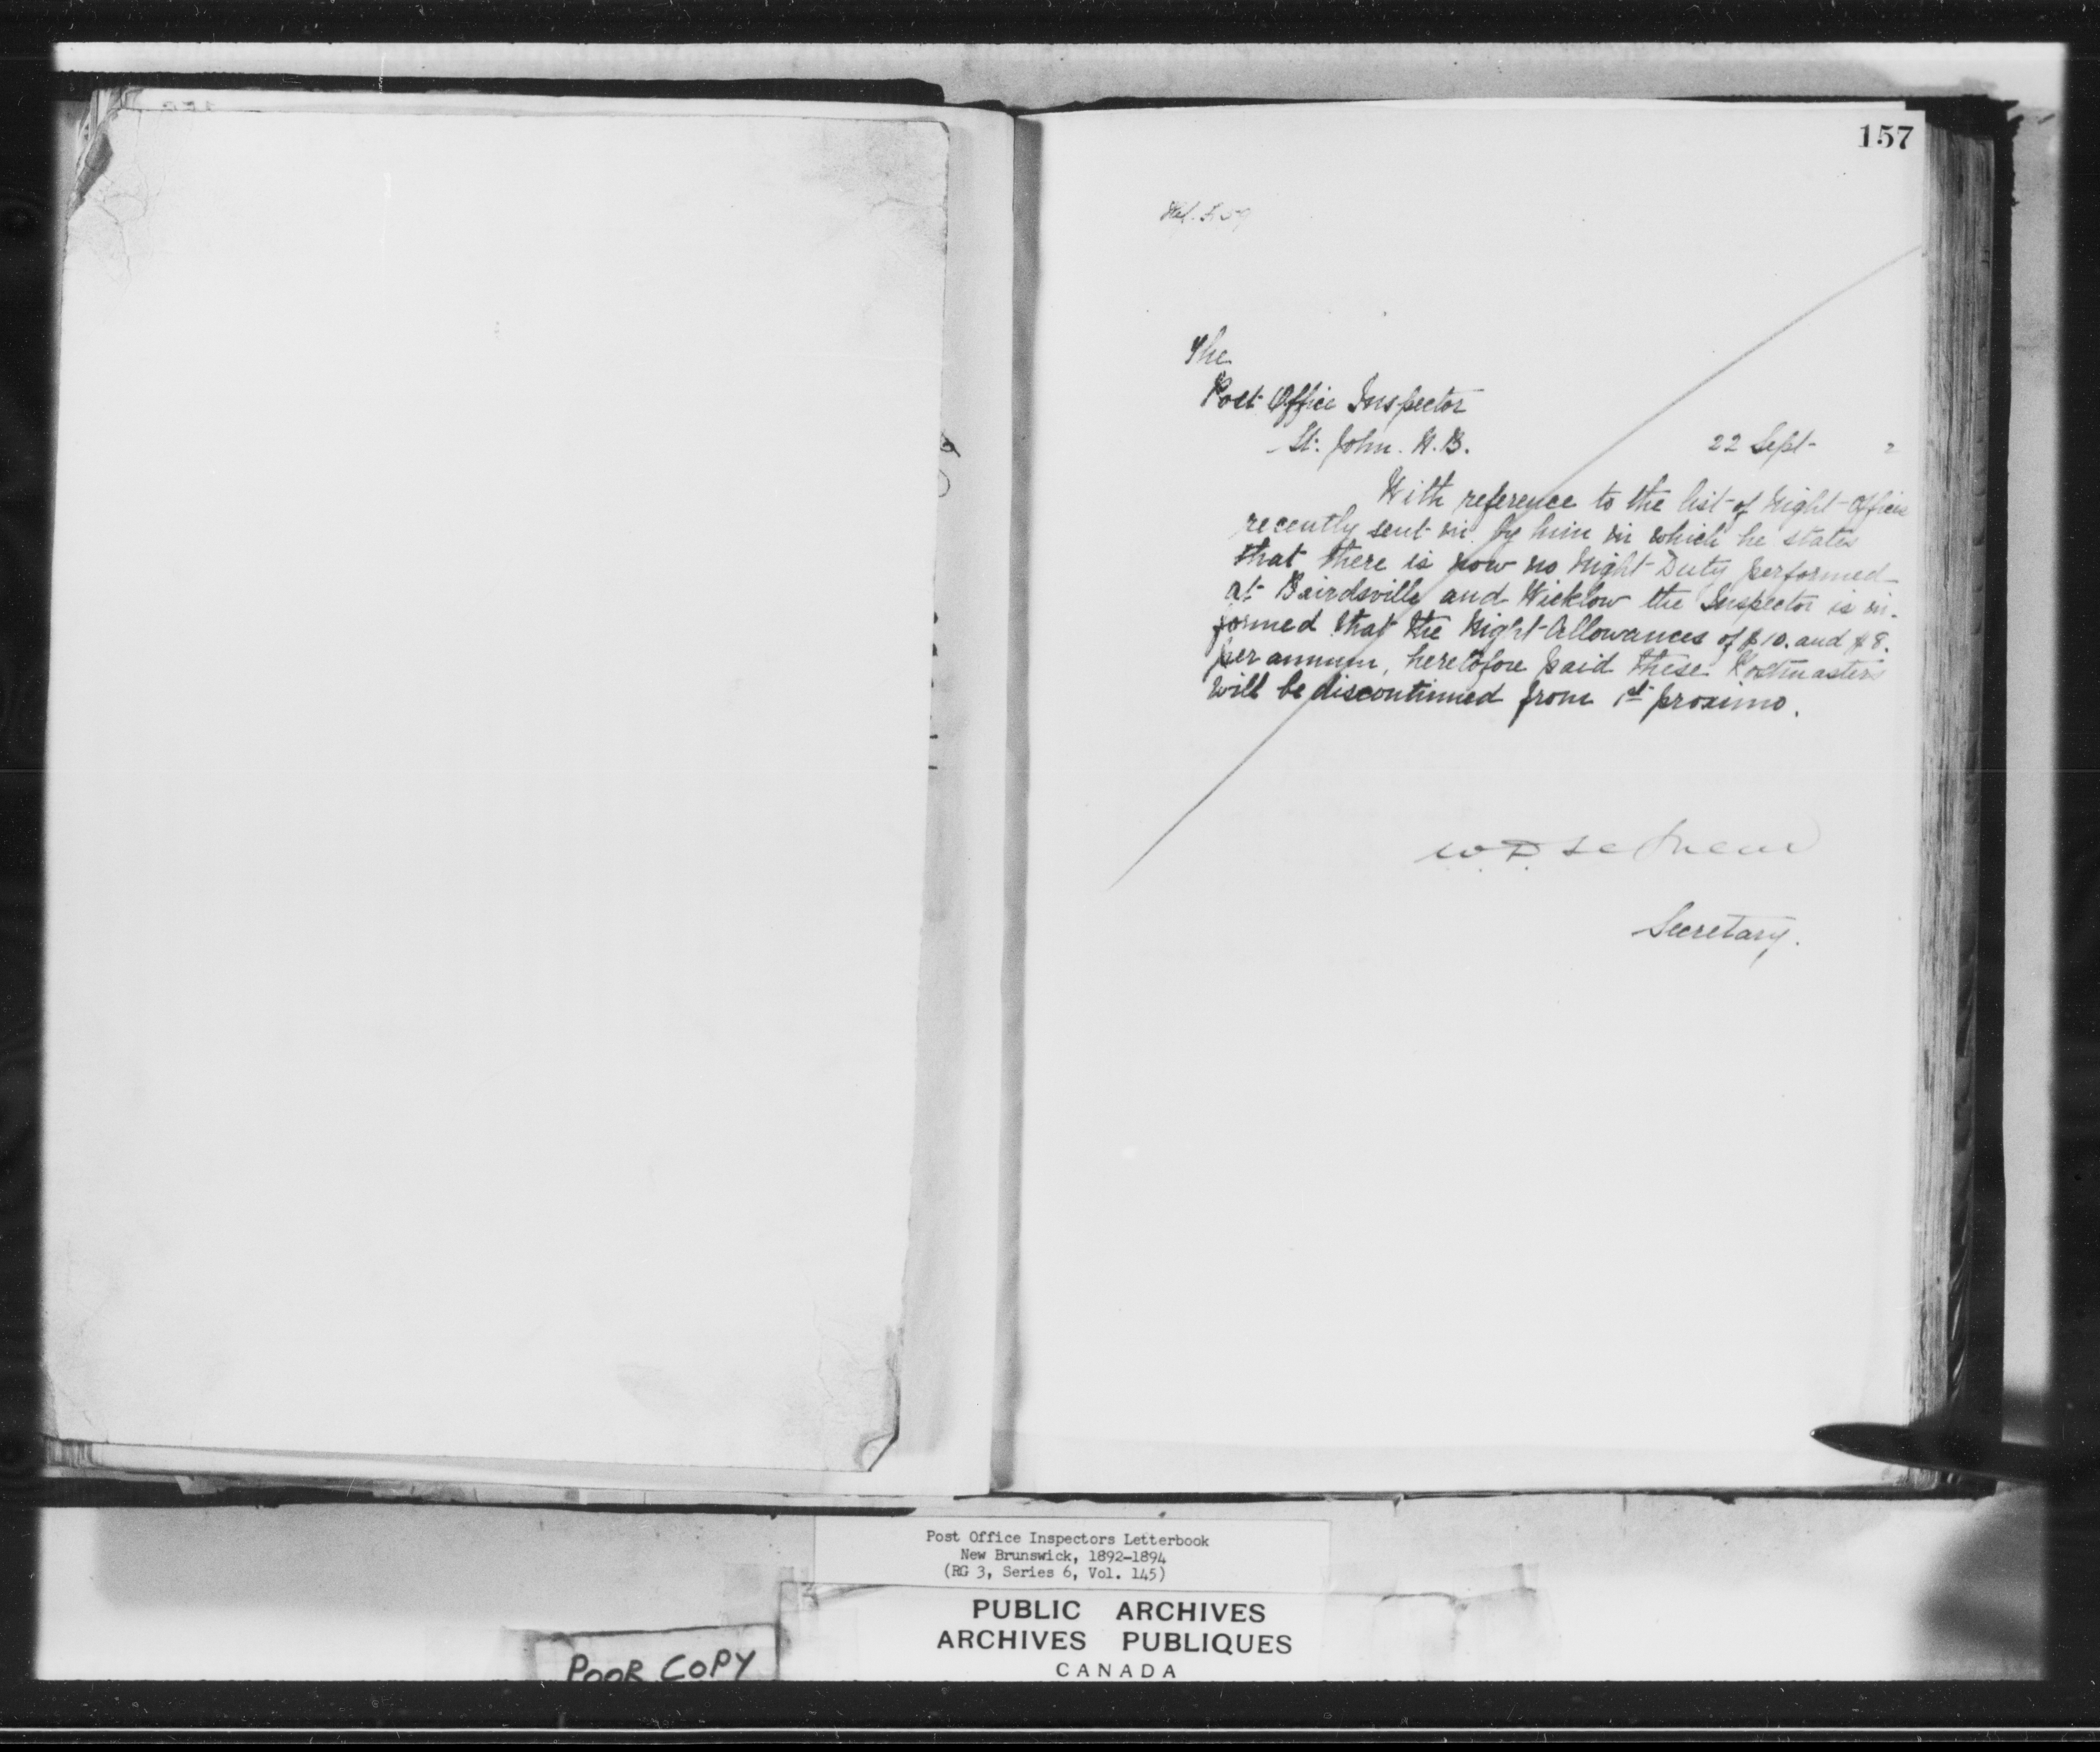 157
The
Post Office Inspector
St. John. N.B. 22 Sept- 2
With reference to the list of Night-Offices
recently sent in by him in which he states
that there is now no Night-Duty performed
at Bairdsville and Wicklow the Inspector is in-
formed that the Night-Allowances of $10. and $8.
per annum, heretofore paid these Postmasters
will be discontinued from 1st proximo.
Secretary.
Post Office Inspectors Letterbook
New Brunswick, 1892-1894
(RG 3, Series 6, Vol. 145)
PUBLIC ARCHIVES
ARCHIVES PUBLIQUES
CANADA
POOR COPY